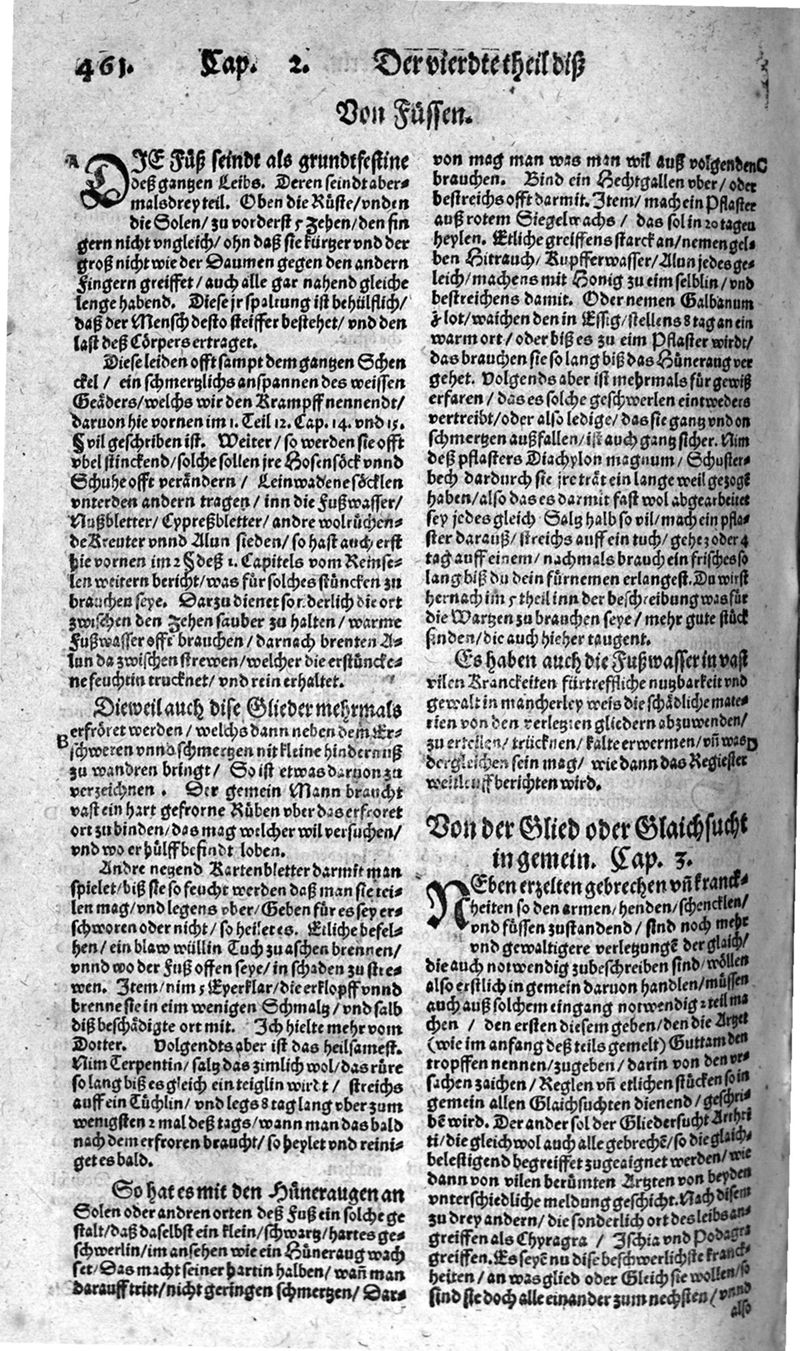 461. Cap. 2. Der vierdte theil diß
Von Füssen.
A DIE Füß seindt als grundtfestine
deß gantzen Leibs. Deren seindt aber-
mals drey teil. Oben die Rüste/ vnden
die Solen/ zu vorderst 5 Zehen/ den fin
gern nicht vngleich/ ohn daß sie kürtzer vnd der
groß nicht wie der Daumen gegen den andern
Fingern greiffet/ auch alle gar nahend gleiche
lenge habend. Diese jr spaltung ist behülflich/
daß der Mensch desto steiffer bestehet/ vnd den
last deß Cörpers ertraget.
Diese leiden offt sampt dem gantzen Schen
ckel/ ein schmertzlichs anspannen des weissen
Geäders/ welchs wir den Krampff nennendt/
daruon hie vornen im 1. Teil 12. Cap. 14. vnd 15.
§ vil geschriben ist. Weiter/ so werden sie offt
vbel stinckend/ solche sollen jre Hosensöck vnnd
Schuhe offt verändern/ Leinwadene söcklen
vnter den andern tragen/ inn die Fußwasser/
Nußbletter/ Cypreßbletter/ andre wolrüchen-
de Kreuter vnnd Alun sieden/ so hast auch erst
hie vornen im 2 § deß 1. Capitels vom Reinse-
len weitern bericht/ was für solches stüncken zu
brauchen seye. Darzu dienet sonderlich die ort
zwischen den Zehen sauber zu halten/ warme
Fußwasser offt brauchen/ darnach brenten A-
lun da zwischen strewen/ welcher die erstüncke-
ne feuchtin trucknet/ vnd rein erhaltet.
Dieweil auch dise Glieder mehrmals
erfröret werden/ welchs dann neben dem Er-
B schweren vnnd schmertzen nit kleine hindernuß
zu wandren bringt/ So ist etwas daruon zu
verzeichnen. Der gemein Mann braucht
vast ein hart gefrorne Rüben vber das erfroret
ort zu binden/ das mag welcher wil versuchen/
vnd wo er hülff befindt loben.
Andre netzend Kartenbletter darmit man
spielet/ biß sie so feucht werden daß man sie tei-
len mag/ vnd legens vber/ Geben für es sey er-
schworen oder nicht/ so heilet es. Etliche befel-
hen/ ein blaw wüllin Tuch zu aschen brennen/
vnnd wo der Fuß offen seye/ in schaden zu stre-
wen. Item/ nim 5 Eyerklar/ die erklopff vnnd
brenne sie in eim wenigen Schmaltz/ vnd salb
diß beschädigte ort mit. Ich hielte mehr vom
Dotter. Volgendts aber ist das heilsamest.
Nim Terpentin/ saltz das zimlich wol/ das rüre
so lang biß es gleich ein teiglin wirdt/ streichs
auff ein Tüchlin/ vnd legs 8 tag lang vber zum
wenigsten 2 mal deß tags/ wann man das bald
nach dem erfroren braucht/ so heylet vnd reini-
get es bald.
So hat es mit den Hüneraugen an
Solen oder andren orten deß Fuß ein solche ge
stalt/ daß daselbst ein klein/ schwartz/ hartes ge-
schwerlin/ im ansehen wie ein Hüneraug wach
set/ Das macht seiner hartin halben/ wañ man
darauff tritt/ nicht geringen schmertzen/ Dar-
von mag man was man wil auß volgenden C
brauchen. Bind ein Hechtgallen vber/ oder
bestreichs offt darmit. Item/ mach ein Pflaster
auß rotem Siegelwachs/ das sol in 20 tagen
heylen. Etliche greiffens starck an/ nemen gel-
ben Hitrauch/ Kupfferwasser/ Alun jedes ge-
leich/ machens mit Honig zu eim selblin/ vnd
bestreichens damit. Oder nemen Galbanum
lot/ waichen den in Essig/ stellens 8 tag an ein
warm ort/ oder biß es zu eim Pflaster wirdt/
das brauchen sie so lang biß das Hüneraug ver
gehet. Volgends aber ist mehrmals für gewiß
erfaren/ das es solche geschwerlen eintweders
vertreibt/ oder also ledige/ das sie gantz vnd on
schmertzen außfallen/ ist auch gantz sicher. Nim
deß pflasters Diachylon magnum/ Schuster-
bech dardurch sie jre trät ein lange weil gezogē
haben/ also das es darmit fast wol abgearbeitet
sey jedes gleich Saltz halb so vil/ mach ein pfla-
ster darauß/ streichs auff ein tuch/ gehe 2 oder 4
tag auff einem/ nachmals brauch ein frisches so
lang biß du dein fürnemen erlangest. Du wirst
hernach im 5 theil inn der beschreibung was für
die Wartzen zu brauchen seye/ mehr gute stück
finden/ die auch hieher taugent.
Es haben auch die Fußwasser in vast
vilen Kranckeiten fürtreffliche nutzbarkeit vnd
gewalt in mancherley weis die schädliche mate-
rien von den verletzten gliedern abzuwenden/
zu erteilen/ trücknen/ kälte erwermen/ vñ was D
dergleichen sein mag/ wie dann das Regiester
weitleuff berichten wird.
Von der Glied oder Glaichsucht
in gemein. Cap. 3.
NEben erzelten gebrechen vñ kranck-
heiten so den armen/ henden/ schencklen/
vnd füssen zustandend/ sind noch mehr
vnd gewaltigere verletzungē der gleich/
die auch notwendig zubeschreiben sind/ wöllen
also erstlich in gemein daruon handlen/ müssen
auch auß solchem eingang notwendig 2 teil ma
chen/ den ersten diesem geben/ den die Artzet
(wie im anfang deß teils gemelt) Guttam den
tropffen nennen/ zugeben/ darin von den vr-
sachen zaichen/ Reglen vñ etlichen stücken so in
gemein allen Glaichsuchten dienend/ geschri-
bē wird. Der ander sol der Gliedersucht Arthri
ti/ die gleich wol auch alle gebrechē/ so die glaich-
belestigend begreiffet zugeaignet werden/ wie
dann von vilen berümten Artzten von beyden
vnterschiedliche meldung geschicht. Nach disem
zu drey andern/ die sonderlich ort des leibs an-
greiffen als Chyragra/ Ischia vnd Podagra
greiffen. Es seyē nu dise beschwerlichste kranck-
heiten/ an was glied oder Gleich sie wollen/ so
sind sie doch alle einander zum nechsten/ vnnd
also